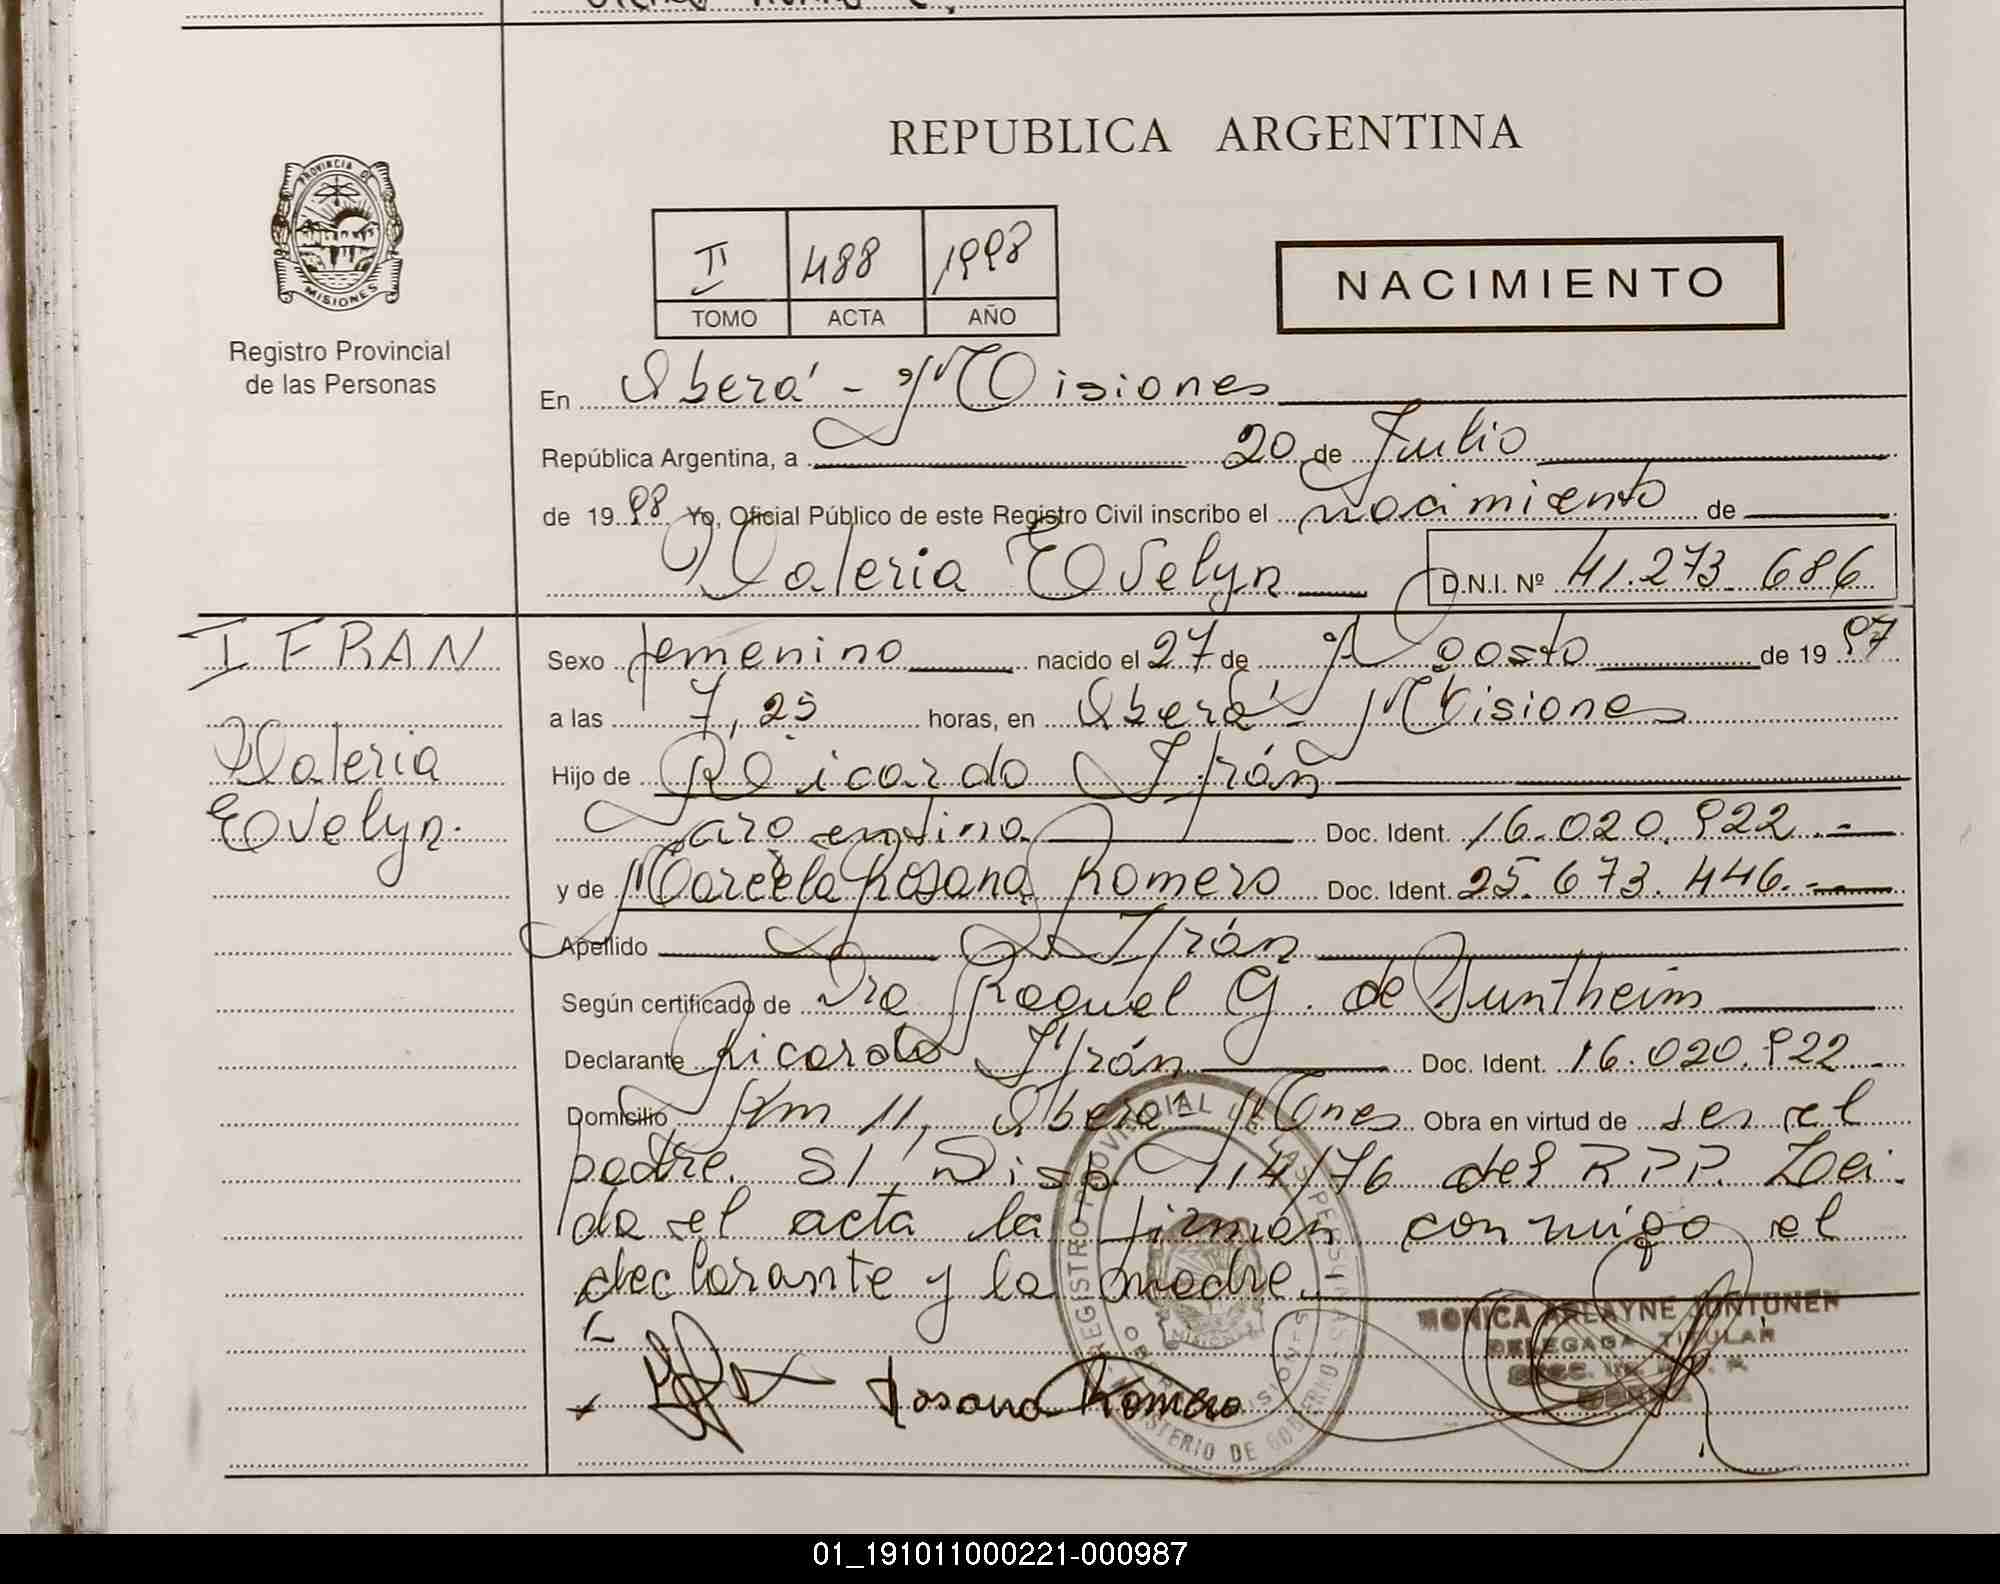 REPUBLICA ARGENTINA
PROVINCIA DE
MISIONES
Registro Provincial
de las Personas
II 488 1998
TOMO ACTA AÑO
NACIMIENTO
En Oberá - Misiones
República Argentina, a 20 de Julio
de 1998 Yo, Oficial Público de este Registro Civil inscribo el nacimiento de
Valeria Evelyn D.N.I. Nº 41.273.686
IFRAN
Valeria
Evelyn.
Sexo femenino nacido el 27 de Agosto de 1997
a las 7,25 horas, en Oberá - Misiones
Hijo de Ricardo Ifrán
argentino Doc. Ident. 16.020.922.-
y de Marcela Rosana Romero Doc. Ident. 25.673.446.-
Apellido Ifrán
Según certificado de Dra Raquel G. de Guntheim
Declarante Ricardo Ifrán Doc. Ident. 16.020.922.-
Domicilio Km 11, Oberá Mnes Obra en virtud de ser el
padre. S/ Disp. 114/76 del R.P.P. Lei-
da el acta la firman conmigo el
declarante y la madre.-
Rosana Romero
REGISTRO PROVINCIAL DE LAS PERSONAS
MINISTERIO DE GOBIERNO
MISIONES
MONICA ARLAYNE JUNTUNEN
DELEGADA TITULAR
01_191011000221-000987